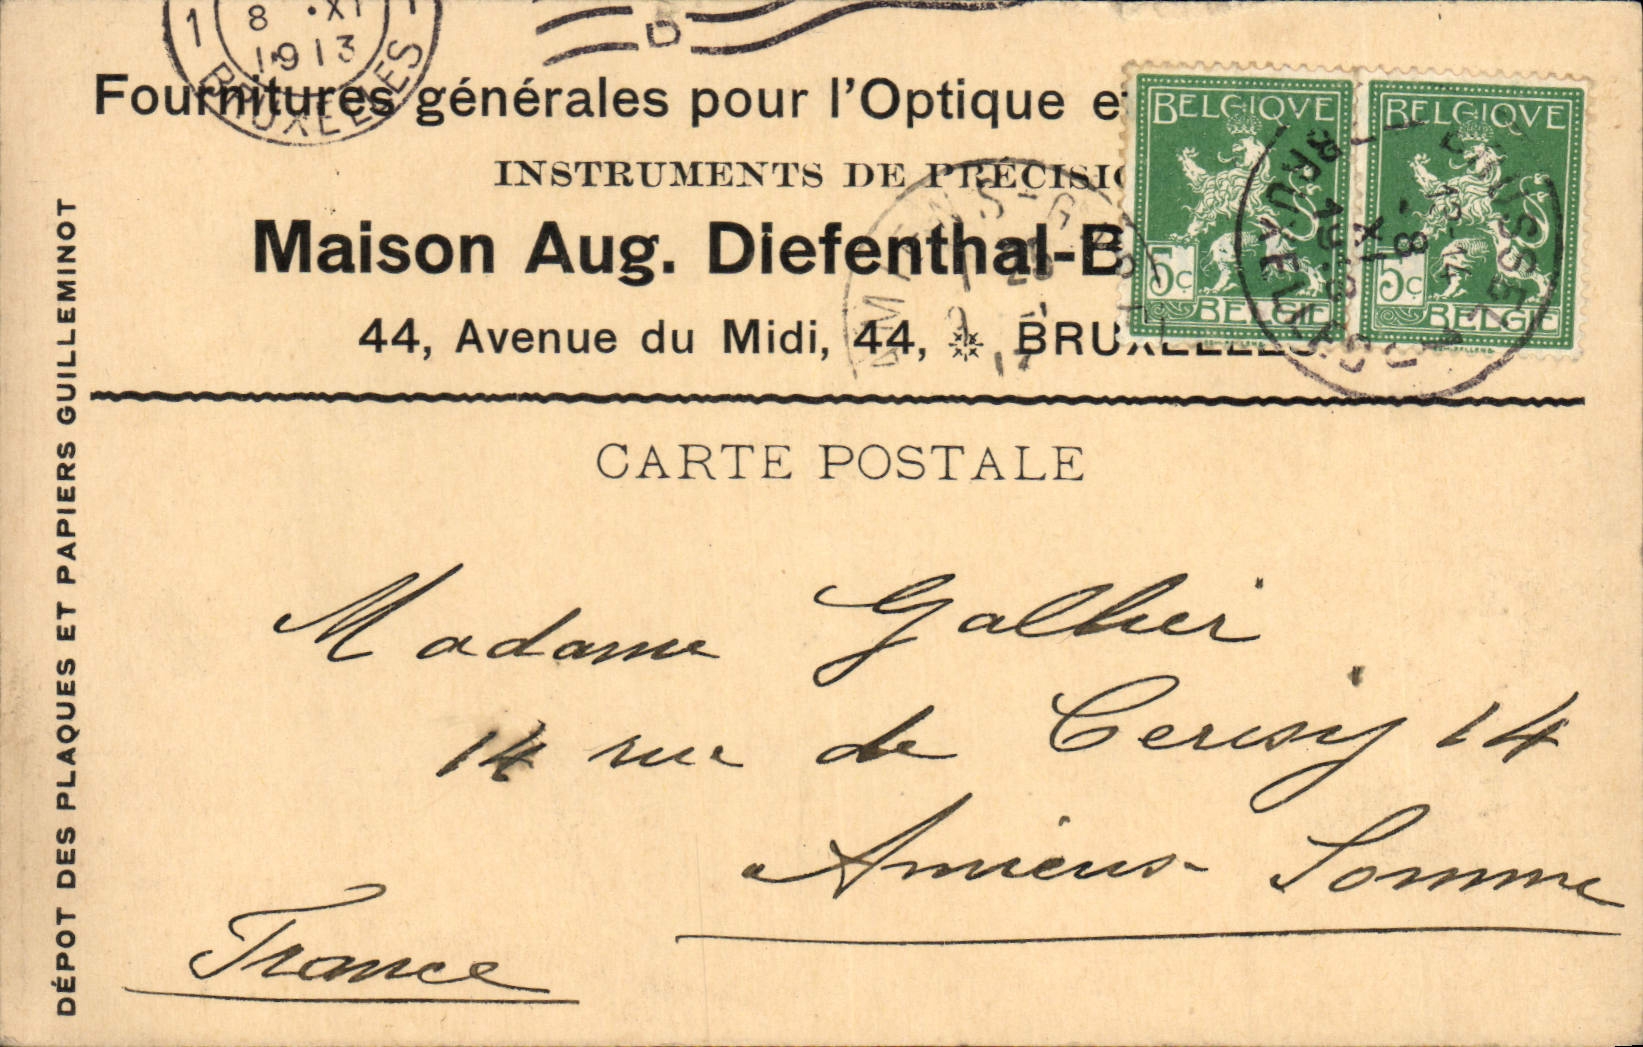 1 8 · XI 1
1913
BRUXELLES
D
Fournitures générales pour l'Optique e
INSTRUMENTS DE PRÉCISI
Maison Aug. Diefenthal-B
44, Avenue du Midi, 44, BRUXELLES
BELGIQVE
5c
BELGIË
BELGIQVE
5c
BELGIE
CARTE POSTALE
Madame
14 rue de Cerisy 14
Amiens - Somme
France
DÉPOT DES PLAQUES ET PAPIERS GUILLEMINOT